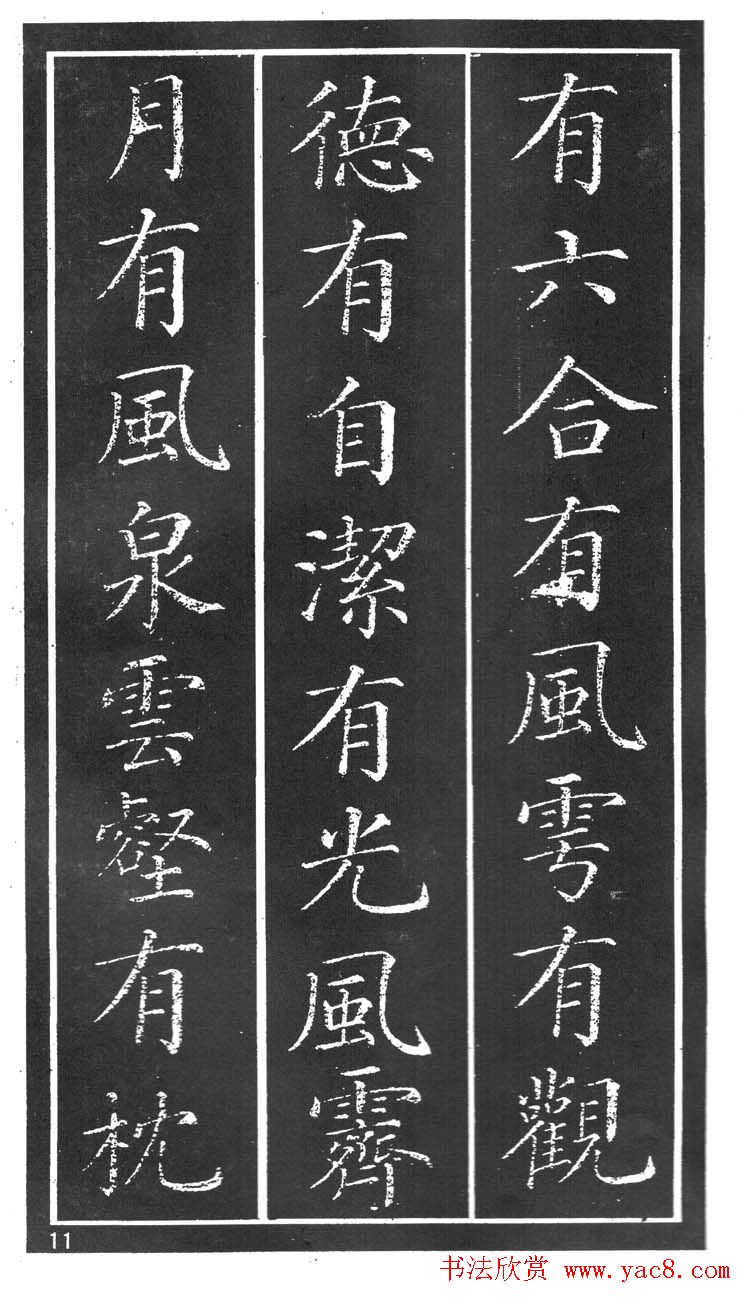 有六合有風雩有觀
德有自潔有光風霽
月有風泉雲壑有枕
11
书法欣赏 www.yac8.com